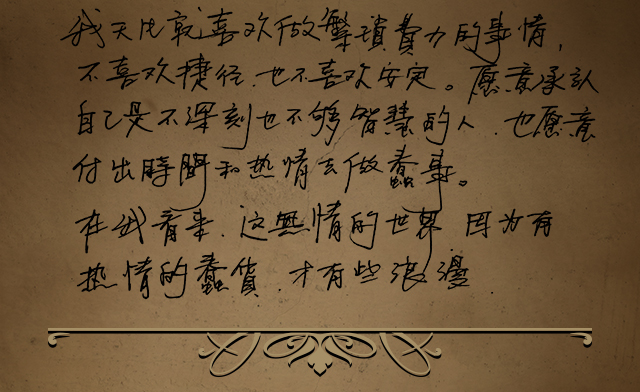 我天比就喜欢做繁琐費力的事情,
不喜欢捷径.也不喜欢安定。愿意承认
自己是不深刻也不够智慧的人.也愿意
付出時間和热情去做蠢事。
在我看来.这無情的世界 因为有
热情的蠢貨.才有些浪漫.